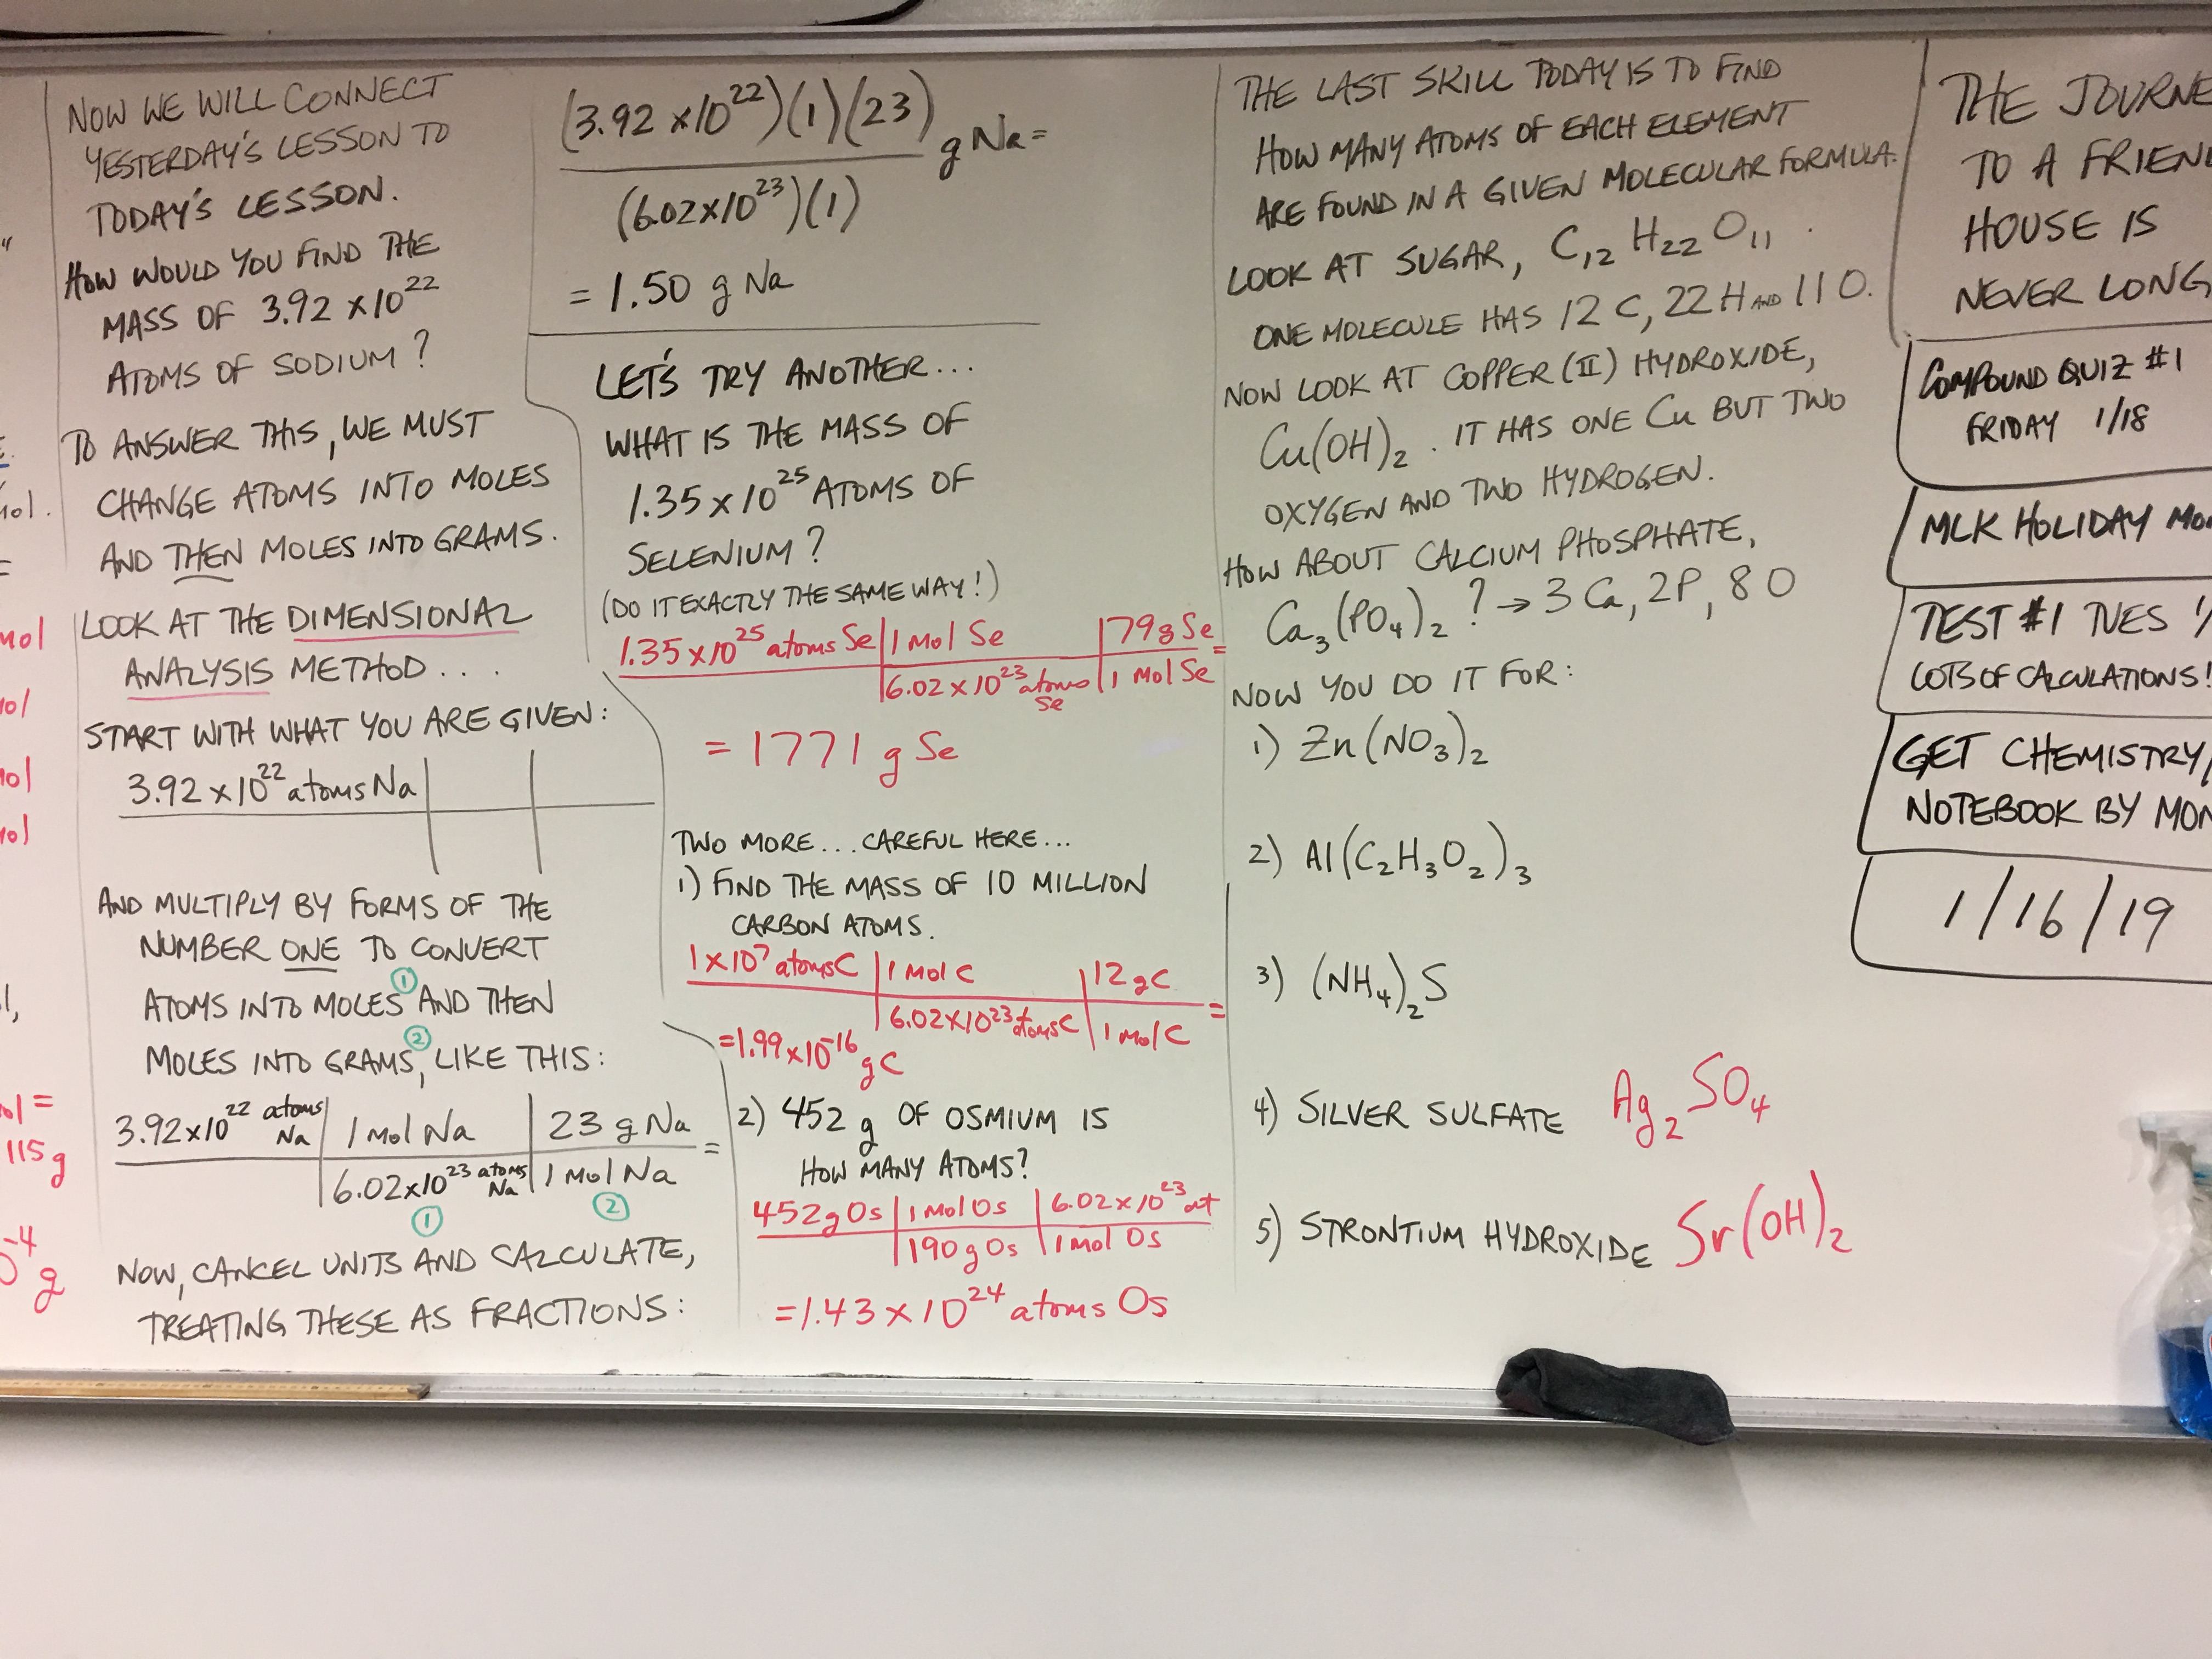 "
E.
mol.
=
mol
mol
mol
mol
mol =
115 g
-4
g
NOW WE WILL CONNECT
YESTERDAY'S LESSON TO
TODAY'S LESSON.
HOW WOULD YOU FIND THE
MASS OF 3.92 x 10²²
ATOMS OF SODIUM?
TO ANSWER THIS, WE MUST
CHANGE ATOMS INTO MOLES
AND THEN MOLES INTO GRAMS.
LOOK AT THE DIMENSIONAL
ANALYSIS METHOD...
START WITH WHAT YOU ARE GIVEN:
3.92 x 10²² atoms Na
AND MULTIPLY BY FORMS OF THE
NUMBER ONE TO CONVERT
ATOMS INTO MOLES ① AND THEN
MOLES INTO GRAMS ②, LIKE THIS:
3.92 x 10²² atoms Na | 1 mol Na | 23 g Na =
6.02 x 10²³ atoms Na | 1 mol Na
① ②
NOW, CANCEL UNITS AND CALCULATE,
TREATING THESE AS FRACTIONS:
(3.92 x 10²²)(1)(23) g Na =
(6.02 x 10²³)(1)
= 1.50 g Na
LET'S TRY ANOTHER...
WHAT IS THE MASS OF
1.35 x 10²⁵ ATOMS OF
SELENIUM?
(DO IT EXACTLY THE SAME WAY!)
1.35 x 10²⁵ atoms Se | 1 mol Se | 79 g Se =
6.02 x 10²³ atoms Se | 1 mol Se
= 1771 g Se
TWO MORE... CAREFUL HERE...
1) FIND THE MASS OF 10 MILLION
CARBON ATOMS.
1 x 10⁷ atoms C | 1 mol C | 12 g C
6.02 x 10²³ atoms C | 1 mol C =
= 1.99 x 10⁻¹⁶ g C
2) 452 g OF OSMIUM IS
HOW MANY ATOMS?
452 g Os | 1 mol Os | 6.02 x 10²³ at
190 g Os | 1 mol Os
= 1.43 x 10²⁴ atoms Os
THE LAST SKILL TODAY IS TO FIND
HOW MANY ATOMS OF EACH ELEMENT
ARE FOUND IN A GIVEN MOLECULAR FORMULA.
LOOK AT SUGAR, C₁₂H₂₂O₁₁.
ONE MOLECULE HAS 12 C, 22 H AND 11 O.
NOW LOOK AT COPPER (II) HYDROXIDE,
Cu(OH)₂. IT HAS ONE Cu BUT TWO
OXYGEN AND TWO HYDROGEN.
HOW ABOUT CALCIUM PHOSPHATE,
Ca₃(PO₄)₂ ? → 3 Ca, 2 P, 8 O
NOW YOU DO IT FOR:
1) Zn(NO₃)₂
2) Al(C₂H₃O₂)₃
3) (NH₄)₂S
4) SILVER SULFATE Ag₂SO₄
5) STRONTIUM HYDROXIDE Sr(OH)₂
THE JOURNE
TO A FRIEN
HOUSE IS
NEVER LONG
COMPOUND QUIZ #1
FRIDAY 1/18
MLK HOLIDAY MO
TEST #1 TUES 1/
LOTS OF CALCULATIONS!
GET CHEMISTRY
NOTEBOOK BY MON
1/16/19